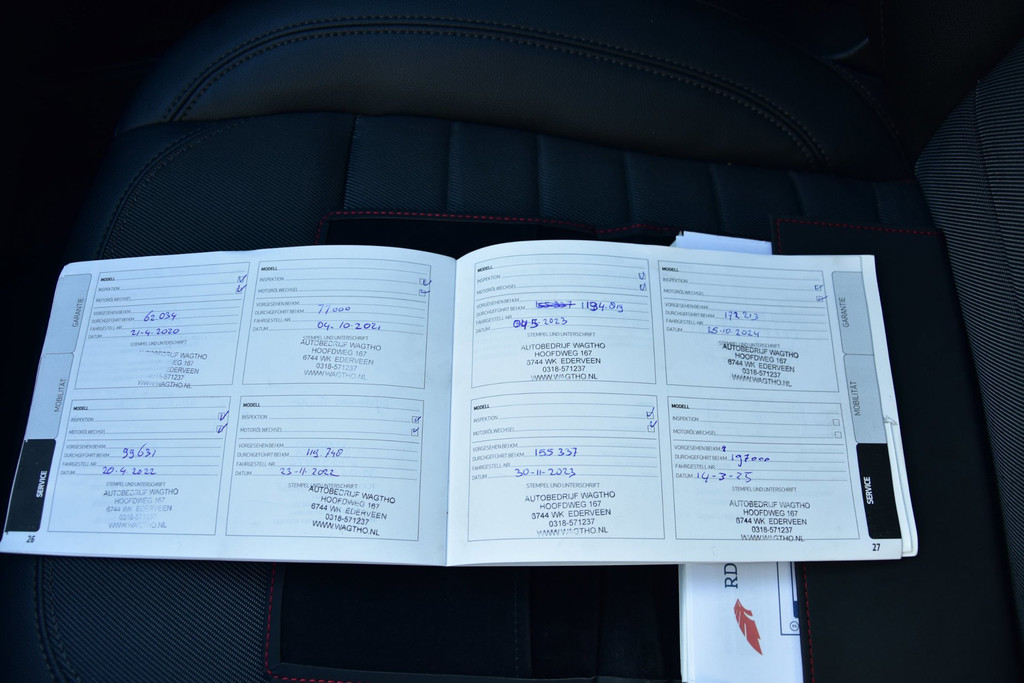 GARANTIE
MOBILITÄT
SERVICE
26
MODELL
INSPEKTION
MOTORÖLWECHSEL
VORGESEHEN BEI KM
DURCHGEFÜHRT BEI KM 62 034
FAHRGESTELL-NR.
DATUM 21-4-2020
STEMPEL UND UNTERSCHRIFT
AUTOBEDRIJF WAGTHO
HOOFDWEG 167
6744 WK EDERVEEN
0318-571237
WWW.WAGTHO.NL
MODELL
INSPEKTION
MOTORÖLWECHSEL
VORGESEHEN BEI KM
DURCHGEFÜHRT BEI KM 77000
FAHRGESTELL-NR.
DATUM 04.10-2021
STEMPEL UND UNTERSCHRIFT
AUTOBEDRIJF WAGTHO
HOOFDWEG 167
6744 WK EDERVEEN
0318-571237
WWW.WAGTHO.NL
MODELL
INSPEKTION
MOTORÖLWECHSEL
VORGESEHEN BEI KM
DURCHGEFÜHRT BEI KM 99631
FAHRGESTELL-NR.
DATUM 20-4-2022
STEMPEL UND UNTERSCHRIFT
AUTOBEDRIJF WAGTHO
HOOFDWEG 167
6744 WK EDERVEEN
0318-571237
WWW.WAGTHO.NL
MODELL
INSPEKTION
MOTORÖLWECHSEL
VORGESEHEN BEI KM
DURCHGEFÜHRT BEI KM
FAHRGESTELL-NR.
DATUM 23-11-2022
STEMPEL UND UNTERSCHRIFT
AUTOBEDRIJF WAGTHO
HOOFDWEG 167
6744 WK EDERVEEN
0318-571237
WWW.WAGTHO.NL
MODELL
INSPEKTION
MOTORÖLWECHSEL
VORGESEHEN BEI KM
DURCHGEFÜHRT BEI KM 155 337
FAHRGESTELL-NR.
DATUM 2023
STEMPEL UND UNTERSCHRIFT
AUTOBEDRIJF WAGTHO
HOOFDWEG 167
6744 WK EDERVEEN
0318-571237
WWW.WAGTHO.NL
MODELL
INSPEKTION
MOTORÖLWECHSEL
VORGESEHEN BEI KM
DURCHGEFÜHRT BEI KM
FAHRGESTELL-NR.
DATUM 25-10-2024
STEMPEL UND UNTERSCHRIFT
AUTOBEDRIJF WAGTHO
HOOFDWEG 167
6744 WK EDERVEEN
0318-571237
WWW.WAGTHO.NL
MODELL
INSPEKTION
MOTORÖLWECHSEL
VORGESEHEN BEI KM
DURCHGEFÜHRT BEI KM 155 337
FAHRGESTELL-NR.
DATUM 30-11-2023
STEMPEL UND UNTERSCHRIFT
AUTOBEDRIJF WAGTHO
HOOFDWEG 167
6744 WK EDERVEEN
0318-571237
WWW.WAGTHO.NL
MODELL
INSPEKTION
MOTORÖLWECHSEL
VORGESEHEN BEI KM
DURCHGEFÜHRT BEI KM 197000
FAHRGESTELL-NR.
DATUM 14-3-25
STEMPEL UND UNTERSCHRIFT
AUTOBEDRIJF WAGTHO
HOOFDWEG 167
6744 WK EDERVEEN
0318-571237
WWW.WAGTHO.NL
GARANTIE
MOBILITÄT
SERVICE
27
RD